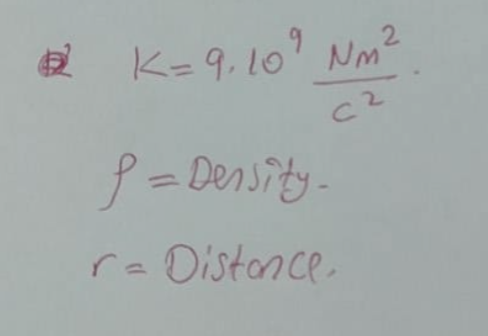 K = 9.10⁹ Nm²/C².
ρ = Density.
r = Distance.